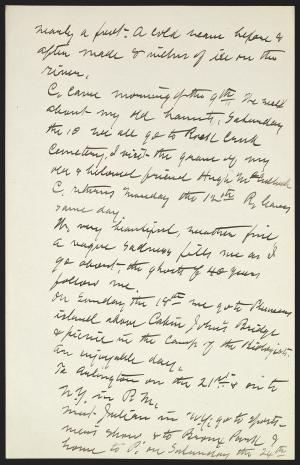 nearly a foot - A cold wave before &
after made 8 inches of ice on the
river.
C. came morning of the 9th, We walk
about my old haunts, Saturday
the 10 we all go to Rock Creek
Cemetery, I visit the grave of my
old & beloved friend Hugh McCulloch
C. returns Tuesday the 14th R. leaves
same day.
W. very beautiful, weather fine
A vague sadness fills me as I
go about, the ghosts of 40 years
follow me.
On Sunday the 18th we go to Plummers
island above Cabin John's Bridge
& picnic in the Camp of the Biologists.
An enjoyable day.
To Arlington on the 21st & on to
N.Y. in P.M.
meet Julian in N.Y. go to Sports-
men's show & to Bronx Park &
home to P. on Saturday the 24th